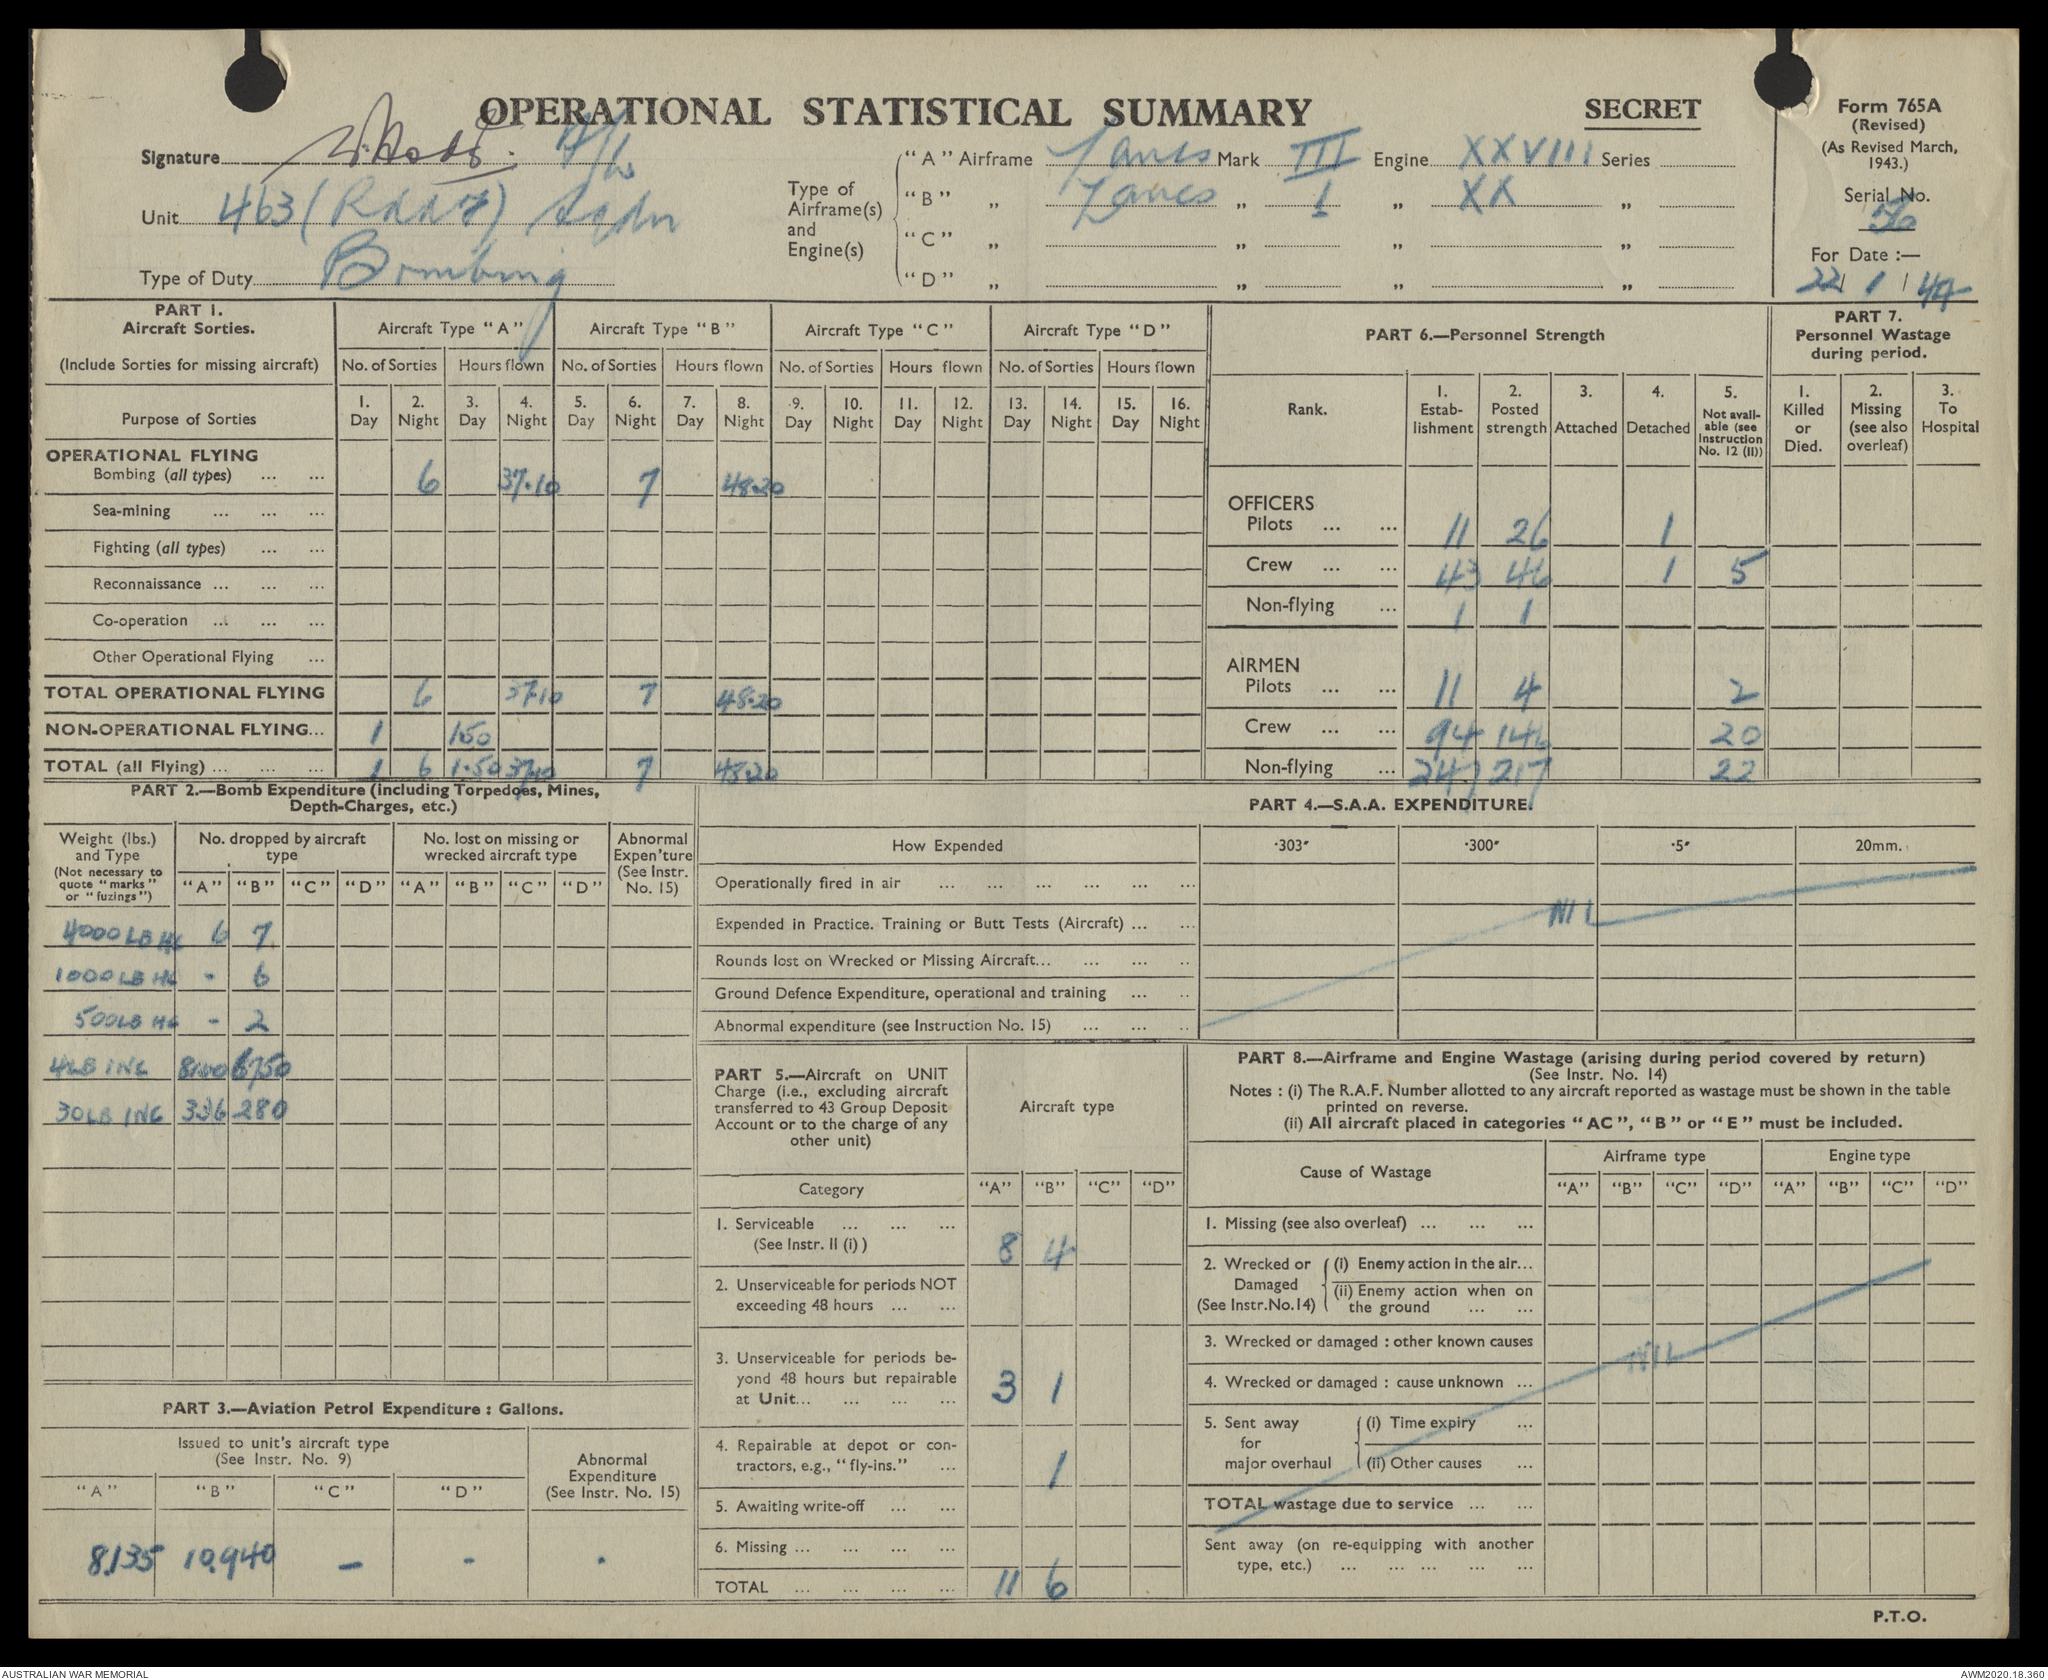 OPERATIONAL STATISTICAL SUMMARY
SECRET
Form 765A
(Revised)
(As Revised March, 1943.)
Serial No.
56
For Date :—
22/ 1 / 44
Signature
Unit 463 (RAAF) Sqdn
Type of Duty Bombing
Type of Airframe(s) and Engine(s)
"A" Airframe Lancs Mark III Engine XXVIII Series
"B" „ Lancs „ I „ XX „
"C" „ „ „ „
"D" „ „ „ „
PART 1.
Aircraft Sorties.
(Include Sorties for missing aircraft)
Purpose of Sorties
Aircraft Type "A" Aircraft Type "B" Aircraft Type "C" Aircraft Type "D"
No. of Sorties Hours flown No. of Sorties Hours flown No. of Sorties Hours flown No. of Sorties Hours flown
1. Day 2. Night 3. Day 4. Night 5. Day 6. Night 7. Day 8. Night 9. Day 10. Night 11. Day 12. Night 13. Day 14. Night 15. Day 16. Night
OPERATIONAL FLYING
Bombing (all types) ... ... 6 37.10 7 48.20
Sea-mining ... ... ...
Fighting (all types) ... ...
Reconnaissance ... ... ...
Co-operation ... ... ...
Other Operational Flying ...
TOTAL OPERATIONAL FLYING 6 37.10 7 48.20
NON-OPERATIONAL FLYING... 1 1.50
TOTAL (all Flying) ... ... ... 1 6 1.50 37.10 7 48.20
PART 6.—Personnel Strength
Rank.
1. Estab-lishment
2. Posted strength
3. Attached
4. Detached
5. Not avail-able (see Instruction No. 12 (II))
OFFICERS
Pilots ... ... 11 26 1
Crew ... ... 43 46 1 5
Non-flying ... 1 1
AIRMEN
Pilots ... ... 11 4 2
Crew ... ... 94 146 20
Non-flying ... 247 217 22
PART 7.
Personnel Wastage during period.
1. Killed or Died.
2. Missing (see also overleaf)
3. To Hospital
PART 2.—Bomb Expenditure (including Torpedoes, Mines, Depth-Charges, etc.)
Weight (lbs.) and Type
(Not necessary to quote "marks" or "fuzings")
No. dropped by aircraft type
No. lost on missing or wrecked aircraft type
Abnormal Expen'ture (See Instr. No. 15)
"A" "B" "C" "D" "A" "B" "C" "D"
4000 LB HC 6 7
1000 LB HC - 6
500 LB HC - 2
4 LB INC 8100 6750
30 LB INC 336 280
PART 3.—Aviation Petrol Expenditure : Gallons.
Issued to unit's aircraft type
(See Instr. No. 9)
Abnormal Expenditure
(See Instr. No. 15)
"A" "B" "C" "D"
8,135 10,940 - - .
PART 4.—S.A.A. EXPENDITURE.
How Expended ·303" ·300" ·5" 20mm.
Operationally fired in air ... ... ... ... ... ...
Expended in Practice. Training or Butt Tests (Aircraft) ... ...
Rounds lost on Wrecked or Missing Aircraft... ... ... ..
Ground Defence Expenditure, operational and training ... ..
Abnormal expenditure (see Instruction No. 15) ... ... ..
NIL
PART 5.—Aircraft on UNIT Charge (i.e., excluding aircraft transferred to 43 Group Deposit Account or to the charge of any other unit)
Aircraft type
Category "A" "B" "C" "D"
1. Serviceable ... ... ...
(See Instr. II (i) ) 8 4
2. Unserviceable for periods NOT
exceeding 48 hours ... ...
3. Unserviceable for periods be-
yond 48 hours but repairable
at Unit... ... ... ... 3 1
4. Repairable at depot or con-
tractors, e.g., "fly-ins." ... 1
5. Awaiting write-off ... ...
6. Missing ... ... ... ...
TOTAL ... ... ... ... 11 6
PART 8.—Airframe and Engine Wastage (arising during period covered by return)
(See Instr. No. 14)
Notes : (i) The R.A.F. Number allotted to any aircraft reported as wastage must be shown in the table
printed on reverse.
(ii) All aircraft placed in categories "AC", "B" or "E" must be included.
Cause of Wastage
Airframe type Engine type
"A" "B" "C" "D" "A" "B" "C" "D"
1. Missing (see also overleaf) ... ... ...
2. Wrecked or Damaged (See Instr.No.14)
(i) Enemy action in the air...
(ii) Enemy action when on the ground ... ...
3. Wrecked or damaged : other known causes
4. Wrecked or damaged : cause unknown ...
5. Sent away for major overhaul
(i) Time expiry ...
(ii) Other causes ...
TOTAL wastage due to service ... ...
Sent away (on re-equipping with another
type, etc.) ... ... ... ... ...
NIL
P.T.O.
AUSTRALIAN WAR MEMORIAL
AWM2020.18.360